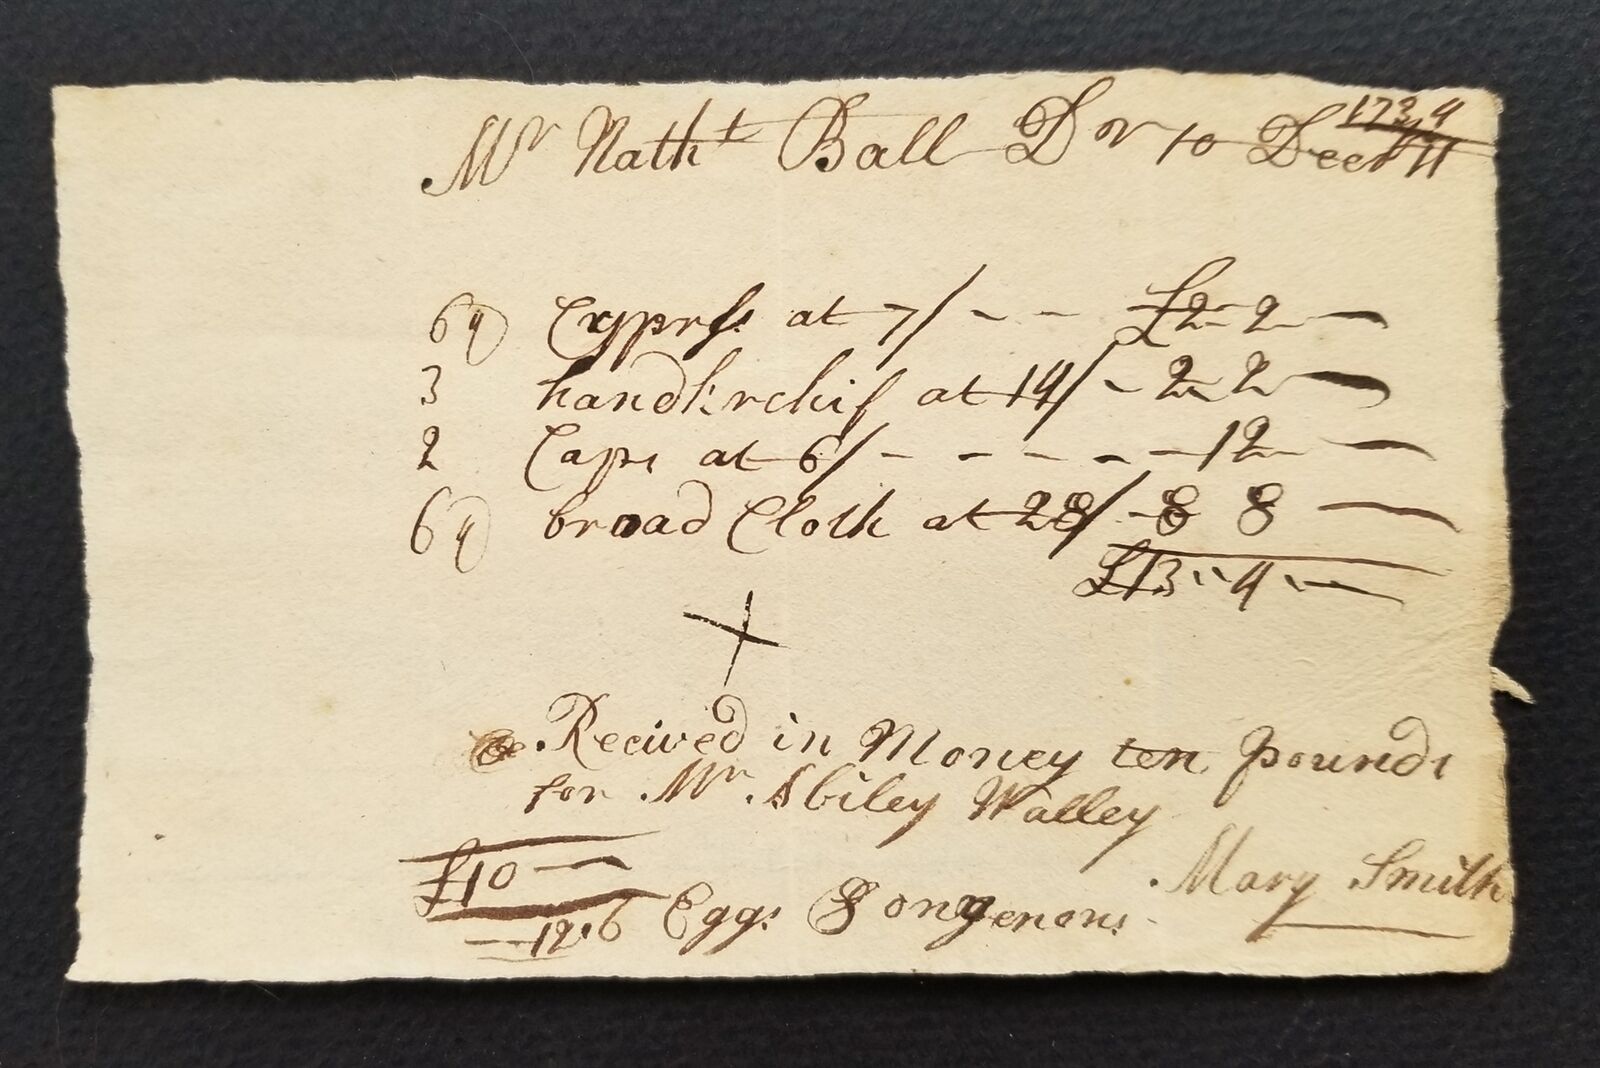 1734
Mr Natht Ball Dr to Decbr 11
6 yd Cyprss at 7/ - - £2 - 2 —
3 handkirchif at 14/ - 2 - 2 —
2 Caps at 6/ - - - - - 12 —
6 yd broad Cloth at 28/ - 8 8 —
£13 " 4 " —
Recived in Money ten pounds
for Mr Abiley Walley
£10 —
Mary Smith
— 12.6 Eggs & onyenons